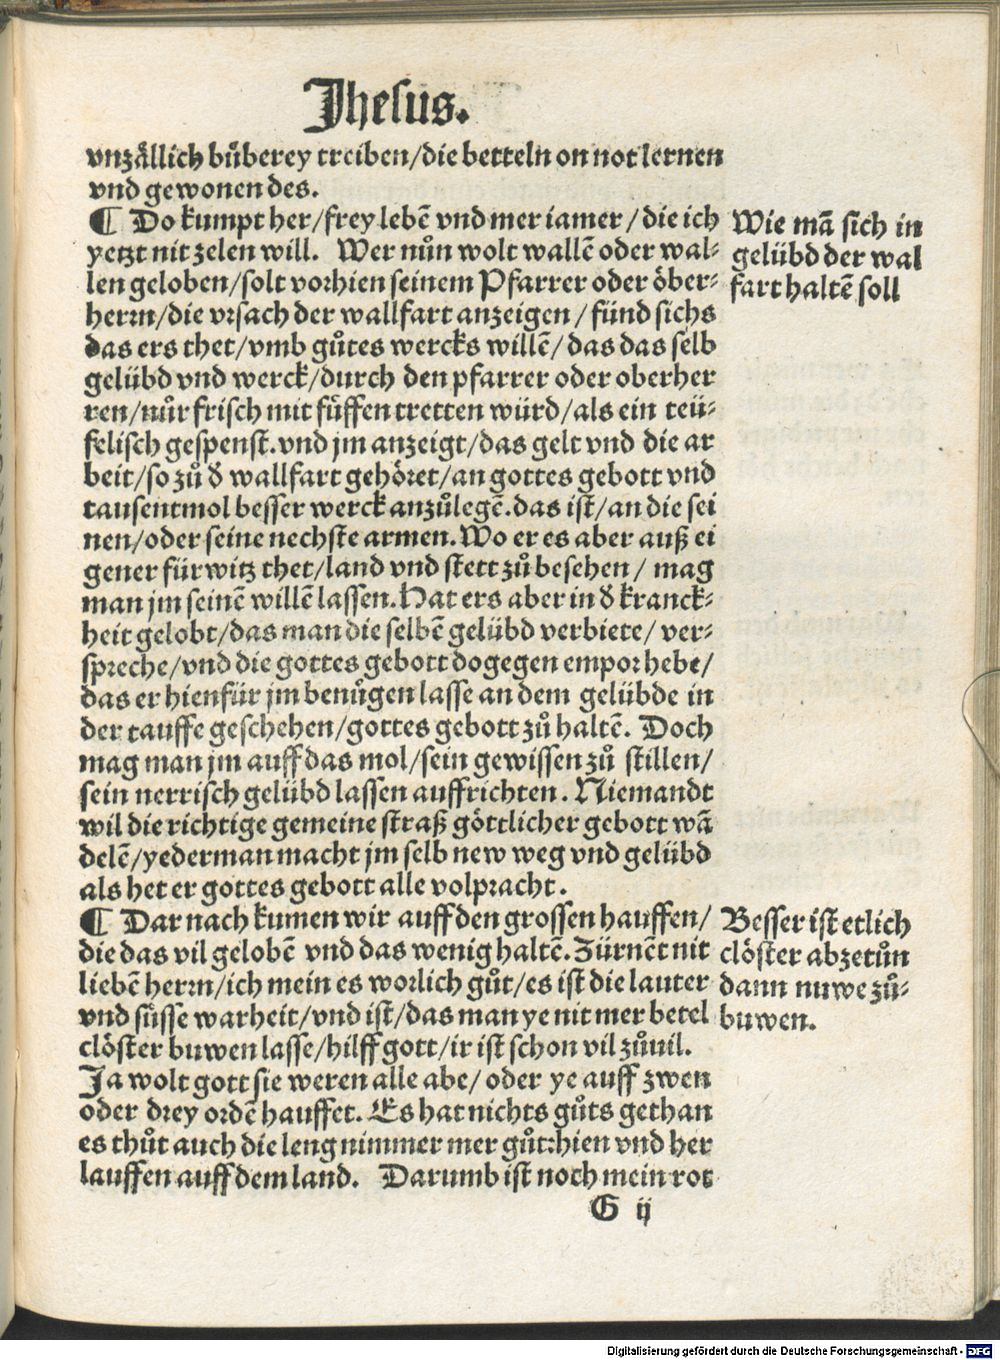 Jhesus.
vnzåͤllich bůͤberey treiben/die betteln on not lernen
vnd gewonen des.
¶ Do kumpt her/frey lebē vnd mer iamer/die ich
yetzt nit zelen will. Wer nůn wolt wallē oder wal⸗
len geloben/solt vorhien seinem Pfarrer oder öber⸗
herrn/die vrsach der wallfart anzeigen/fünd sichs
das ers thet/vmb gůtes wercks willē/das das selb
gelübd vnd werck/durch den pfarrer oder oberher
ren/nůr frisch mit füssen tretten würd/als ein teü⸗
felisch gespenst.vnd jm anzeigt/das gelt vnd die ar
beit/so zů ð wallfart gehöret/an gottes gebott vnd
tausentmol besser werck anzůlegē.das ist/an die sei
nen/oder seine nechste armen.Wo er es aber auß ei
gener fürwitz thet/land vnd stett zů besehen/ mag
man jm seinē willē lassen.Hat ers aber in ð kranck⸗
heit gelobt/das man die selbē gelübd verbiete/ ver⸗
spreche/vnd die gottes gebott dogegen empor hebe/
das er hienfür jm benůgen lasse an dem gelübde in
der tauffe geschehen/gottes gebott zů haltē. Doch
mag man jm auff das mol/sein gewissen zů stillen/
sein nerrisch gelübd lassen auffrichten. Niemandt
wil die richtige gemeine straß göttlicher gebott wā
delē/yederman macht jm selb new weg vnd gelübd
als het er gottes gebott alle volpracht.
¶ Dar nach kumen wir auff den grossen hauffen/
die das vil gelobē vnd das wenig haltē.Zürnēt nit
liebē herrn/ich mein es worlich gůt/es ist die lauter
vnd süsse warheit/vnd ist/das man ye nit mer betel
clöster buwen lasse/hilff gott/ir ist schon vil zůuil.
Ja wolt gott sie weren alle abe/ oder ye auff zwen
oder drey ordē hauffet. Es hat nichts gůts gethan
es thůt auch die leng nimmer mer gůt:hien vnd her
lauffen auff dem land. Darumb ist noch mein rot
G ij
Wie mā sich in
gelübd der wal
fart haltē soll
Besser ist etlich
clöster abzetůn
dann nuwe zů⸗
buwen.
Digitalisierung gefördert durch die Deutsche Forschungsgemeinschaft - DFG